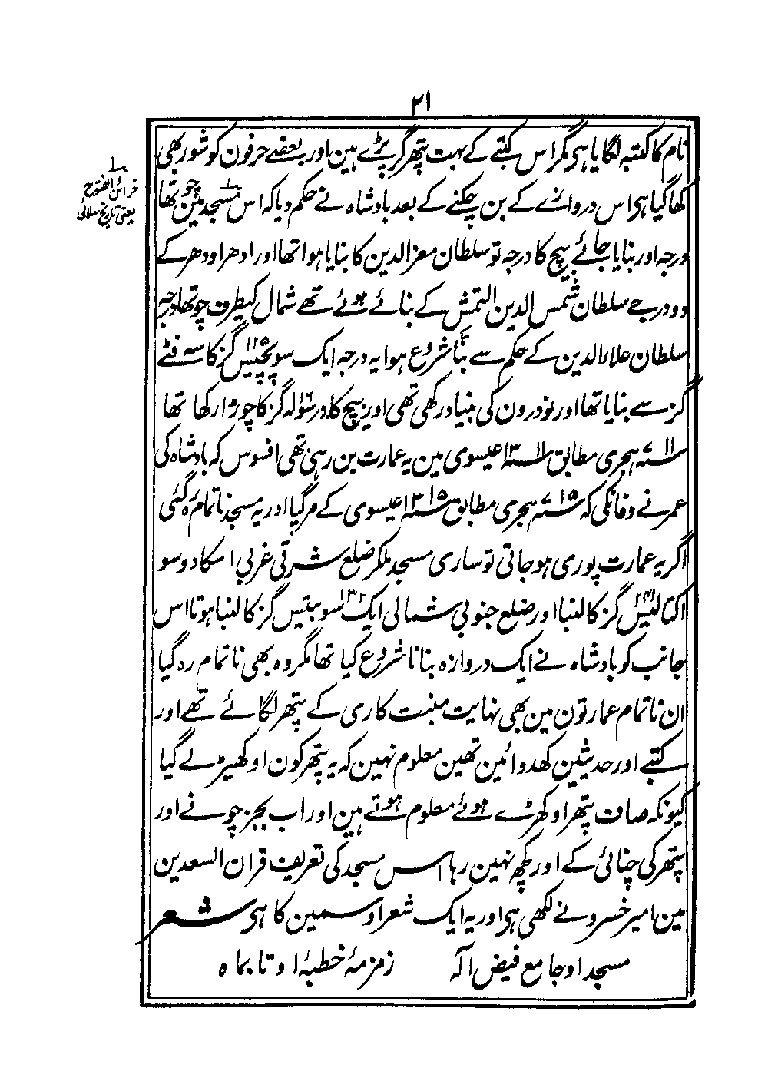 ۲۱
نام کا کتبہ لگایا ہی مگر اس کتبے کے بہت پتھر گر پڑے ہین اور بعضے حرفون کو شور بھی
کھا گیا ہی اس دروازے کے بن چکنے کے بعد بادشاہ نے حکم دیا کہ اس مسجد مین چوتھا
درجہ اور بنایا جائے بیچ کا درجہ تو سلطان معز الدین کا بنایا ہوا تھا اور ادھر اودھر کے
دو درجے سلطان شمس الدین التمش کے بنائے ہوئے تھے شمال کیطرف چوتھا درجہ
سلطان علاءالدین کے حکم سے بننا شروع ہوا یہ درجہ ایک سو پچیس ۱۲۵ گز کا سہ فٹے
گز سے بنایا تھا اور نو درون کی بنیاد رکھی تھی اور بیچ کا در سولہ ۱۶ گز کا چوڑا رکھا تھا
۷۱۱ سنہ ہجری مطابق ۱۳۱۱ سنہ عیسوی مین یہ عمارت بن رہی تھی افسوس کہ بادشاہ کی
عمر نے وفا نکی کہ ۷۱۵ سنہ ہجری مطابق ۱۳۱۵ سنہ عیسوی کے مرگیا اور یہ مسجد ناتمام رہ گئی
اگر یہ عمارت پوری ہو جاتی تو ساری مسجد ملکر ضلع شرقی غربی اسکا دو سو
اکتالیس ۲۴۱ گز کا لنبا اور ضلع جنوبی شمالی ایک سو بتیس ۱۳۲ گز کا لنبا ہوتا اس
جانب کو بادشاہ نے ایک دروازہ بنانا شروع کیا تھا مگر وہ بھی ناتمام رہ گیا
ان ناتمام عمارتون مین بھی نہایت منبت کاری کے پتھر لگائے تھے اور
کتبے اور حدیثین کھدوائین تھین معلوم نہین کہ یہ پتھر کون اوکھیڑ لے گیا
کیونکہ صاف پتھر اوکھڑے ہوئے معلوم ہوتے ہین اور اب بجز چونے اور
پتھر کی چنائی کے اور کچھ نہین رہا اس مسجد کی تعریف قران السعدین
مین امیر خسرو نے لکھی ہی اور یہ ایک شعر اوسمین کا ہی شعر
مسجد او جامع فیض الہ زمزمۂ خطبۂ او تا بماہ
۱
خزائن الفتوح
یعنی تاریخ علائی